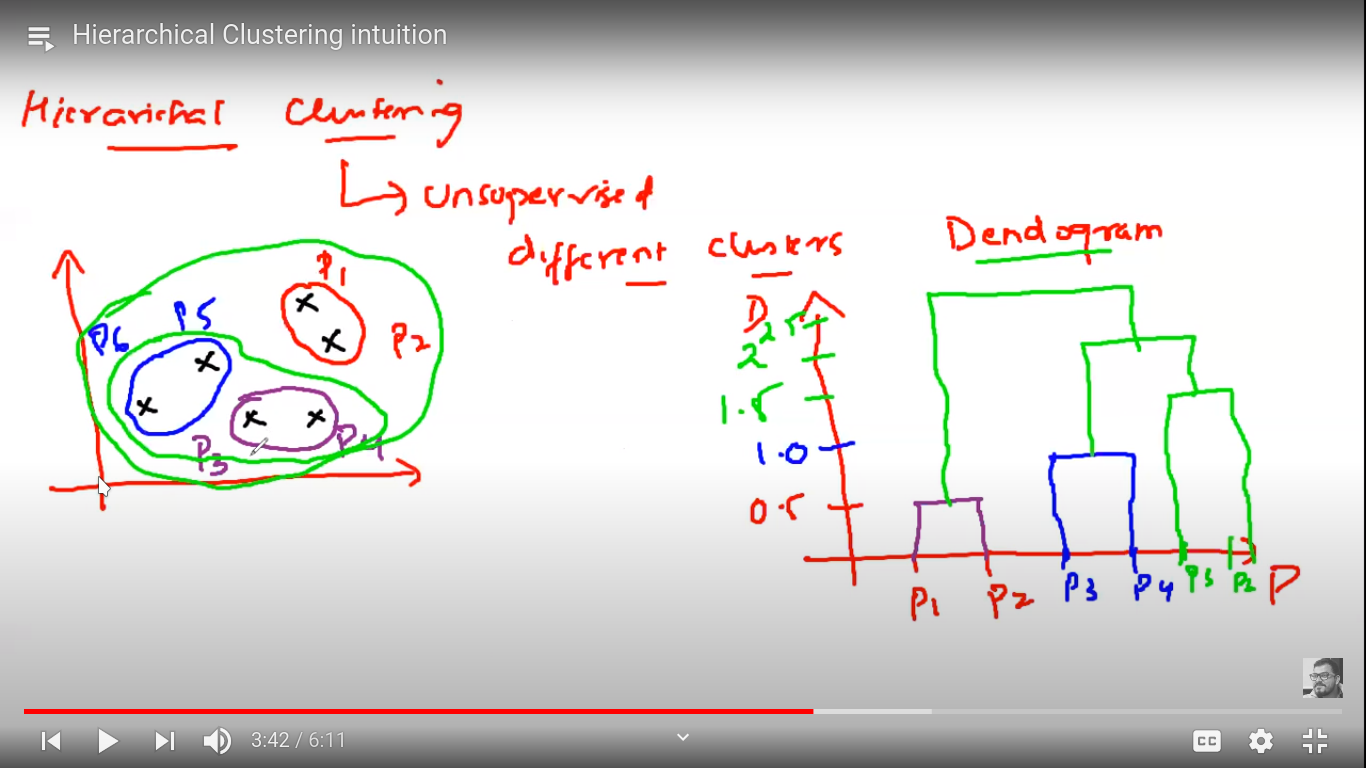 Hierarchical Clustering intuition
Hierarichal Clustering
Unsupervised
different clusters
Dendogram
P1
P2
P5
P6
P3
P4
D
2.5
2
1.5
1.0
0.5
P1 P2 P3 P4 P5 P2 P
3:42 / 6:11
CC